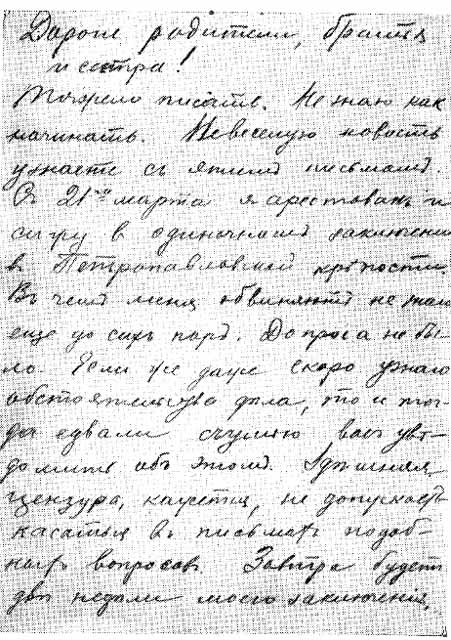 Дорогіе родители, братья
и сестра!
Тяжело писать. Не знаю какъ
начинать. Невеселую новость
узнаете съ этимъ письмомъ.
Съ 21го марта я арестованъ и
сижу в одиночномъ заключеніи
в Петропавловской крѣпости.
Въ чемъ меня обвиняютъ не знаю
еще до сихъ поръ. Допроса не бы-
ло. Если же даже скоро узнаю
обстоятельства дѣла, то и тог-
да едвали съумѣю васъ увѣ-
домить объ этомъ. Здѣшняя
цензура, кажется, не допускаетъ
касаться въ письмахъ подоб-
ныхъ вопросовъ. Завтра будетъ
двѣ недѣли моего заключенія,